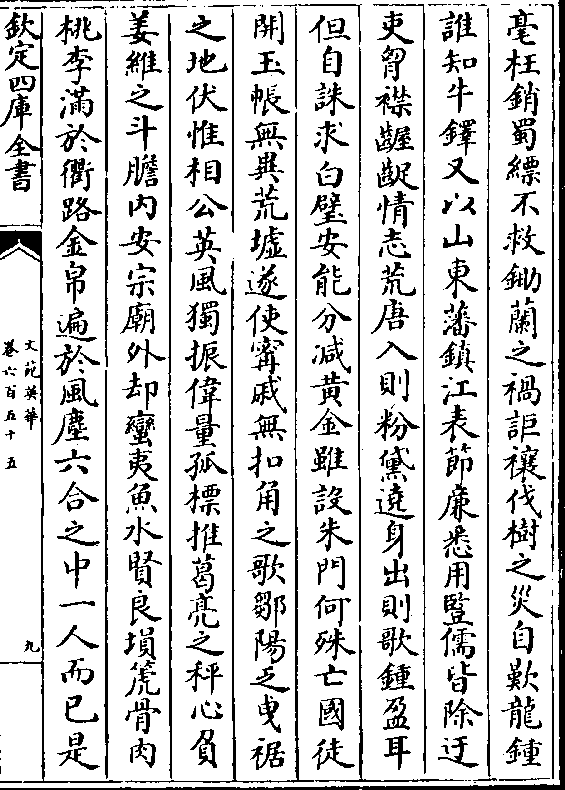 毫枉銷蜀縹不救鋤蘭之禍詎禳伐樹之災自歎龍鍾
誰知牛鐸又以山東藩鎮江表節廉悉用豎儒皆除迂
吏胷襟齷齪情志荒唐入則粉黛遶身出則歌鍾盈耳
但自誅求白璧安能分减黄金雖設朱門何殊亡國徒
開玉帳無異荒墟遂使寗戚無扣角之歌鄒陽乏曵裾
之地伏惟相公英風獨振偉量孤標推葛亮之秤心負
姜維之斗膽内安宗廟外却蠻夷魚水賢良塤篪骨肉
桃李滿於衢路金帛遍於風塵六合之中一人而已是
欽定四庫全書
文苑英華
卷六百五十五
九